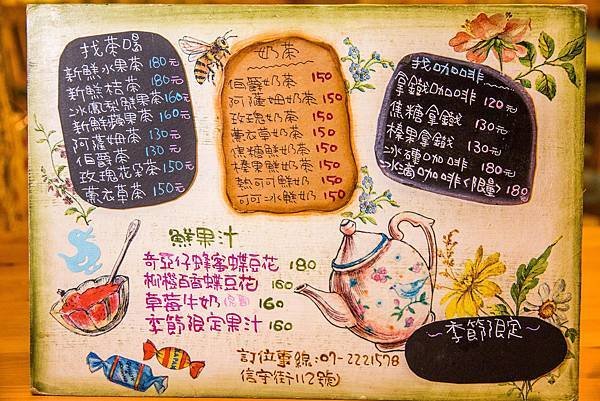 找茶喝
新鮮水果茶 180元
新鮮桔茶 180元
冰鳳梨鮮果茶 160元
新鮮蘋果茶 160元
阿薩姆茶 130元
伯爵茶 130元
玫瑰花果茶 150元
薰衣草茶 150元
奶茶
伯爵奶茶 150
阿薩姆奶茶 150
玫瑰奶茶 150
薰衣草奶茶 150
焦糖鮮奶茶 150
榛果鮮奶茶 150
熱可可鮮奶 150
可可冰鮮奶 150
找咖啡
拿鐵咖啡 120元
焦糖拿鐵 130元
榛果拿鐵 130元
冰磚咖啡 180元
冰滴咖啡(限量) 180
鮮果汁
奇亞仔蜂蜜蝶豆花 180
柳橙百香蝶豆花 160
草莓牛奶 160
季節限定果汁 160
~季節限定~
訂位專線:07-2221578
信守街112號